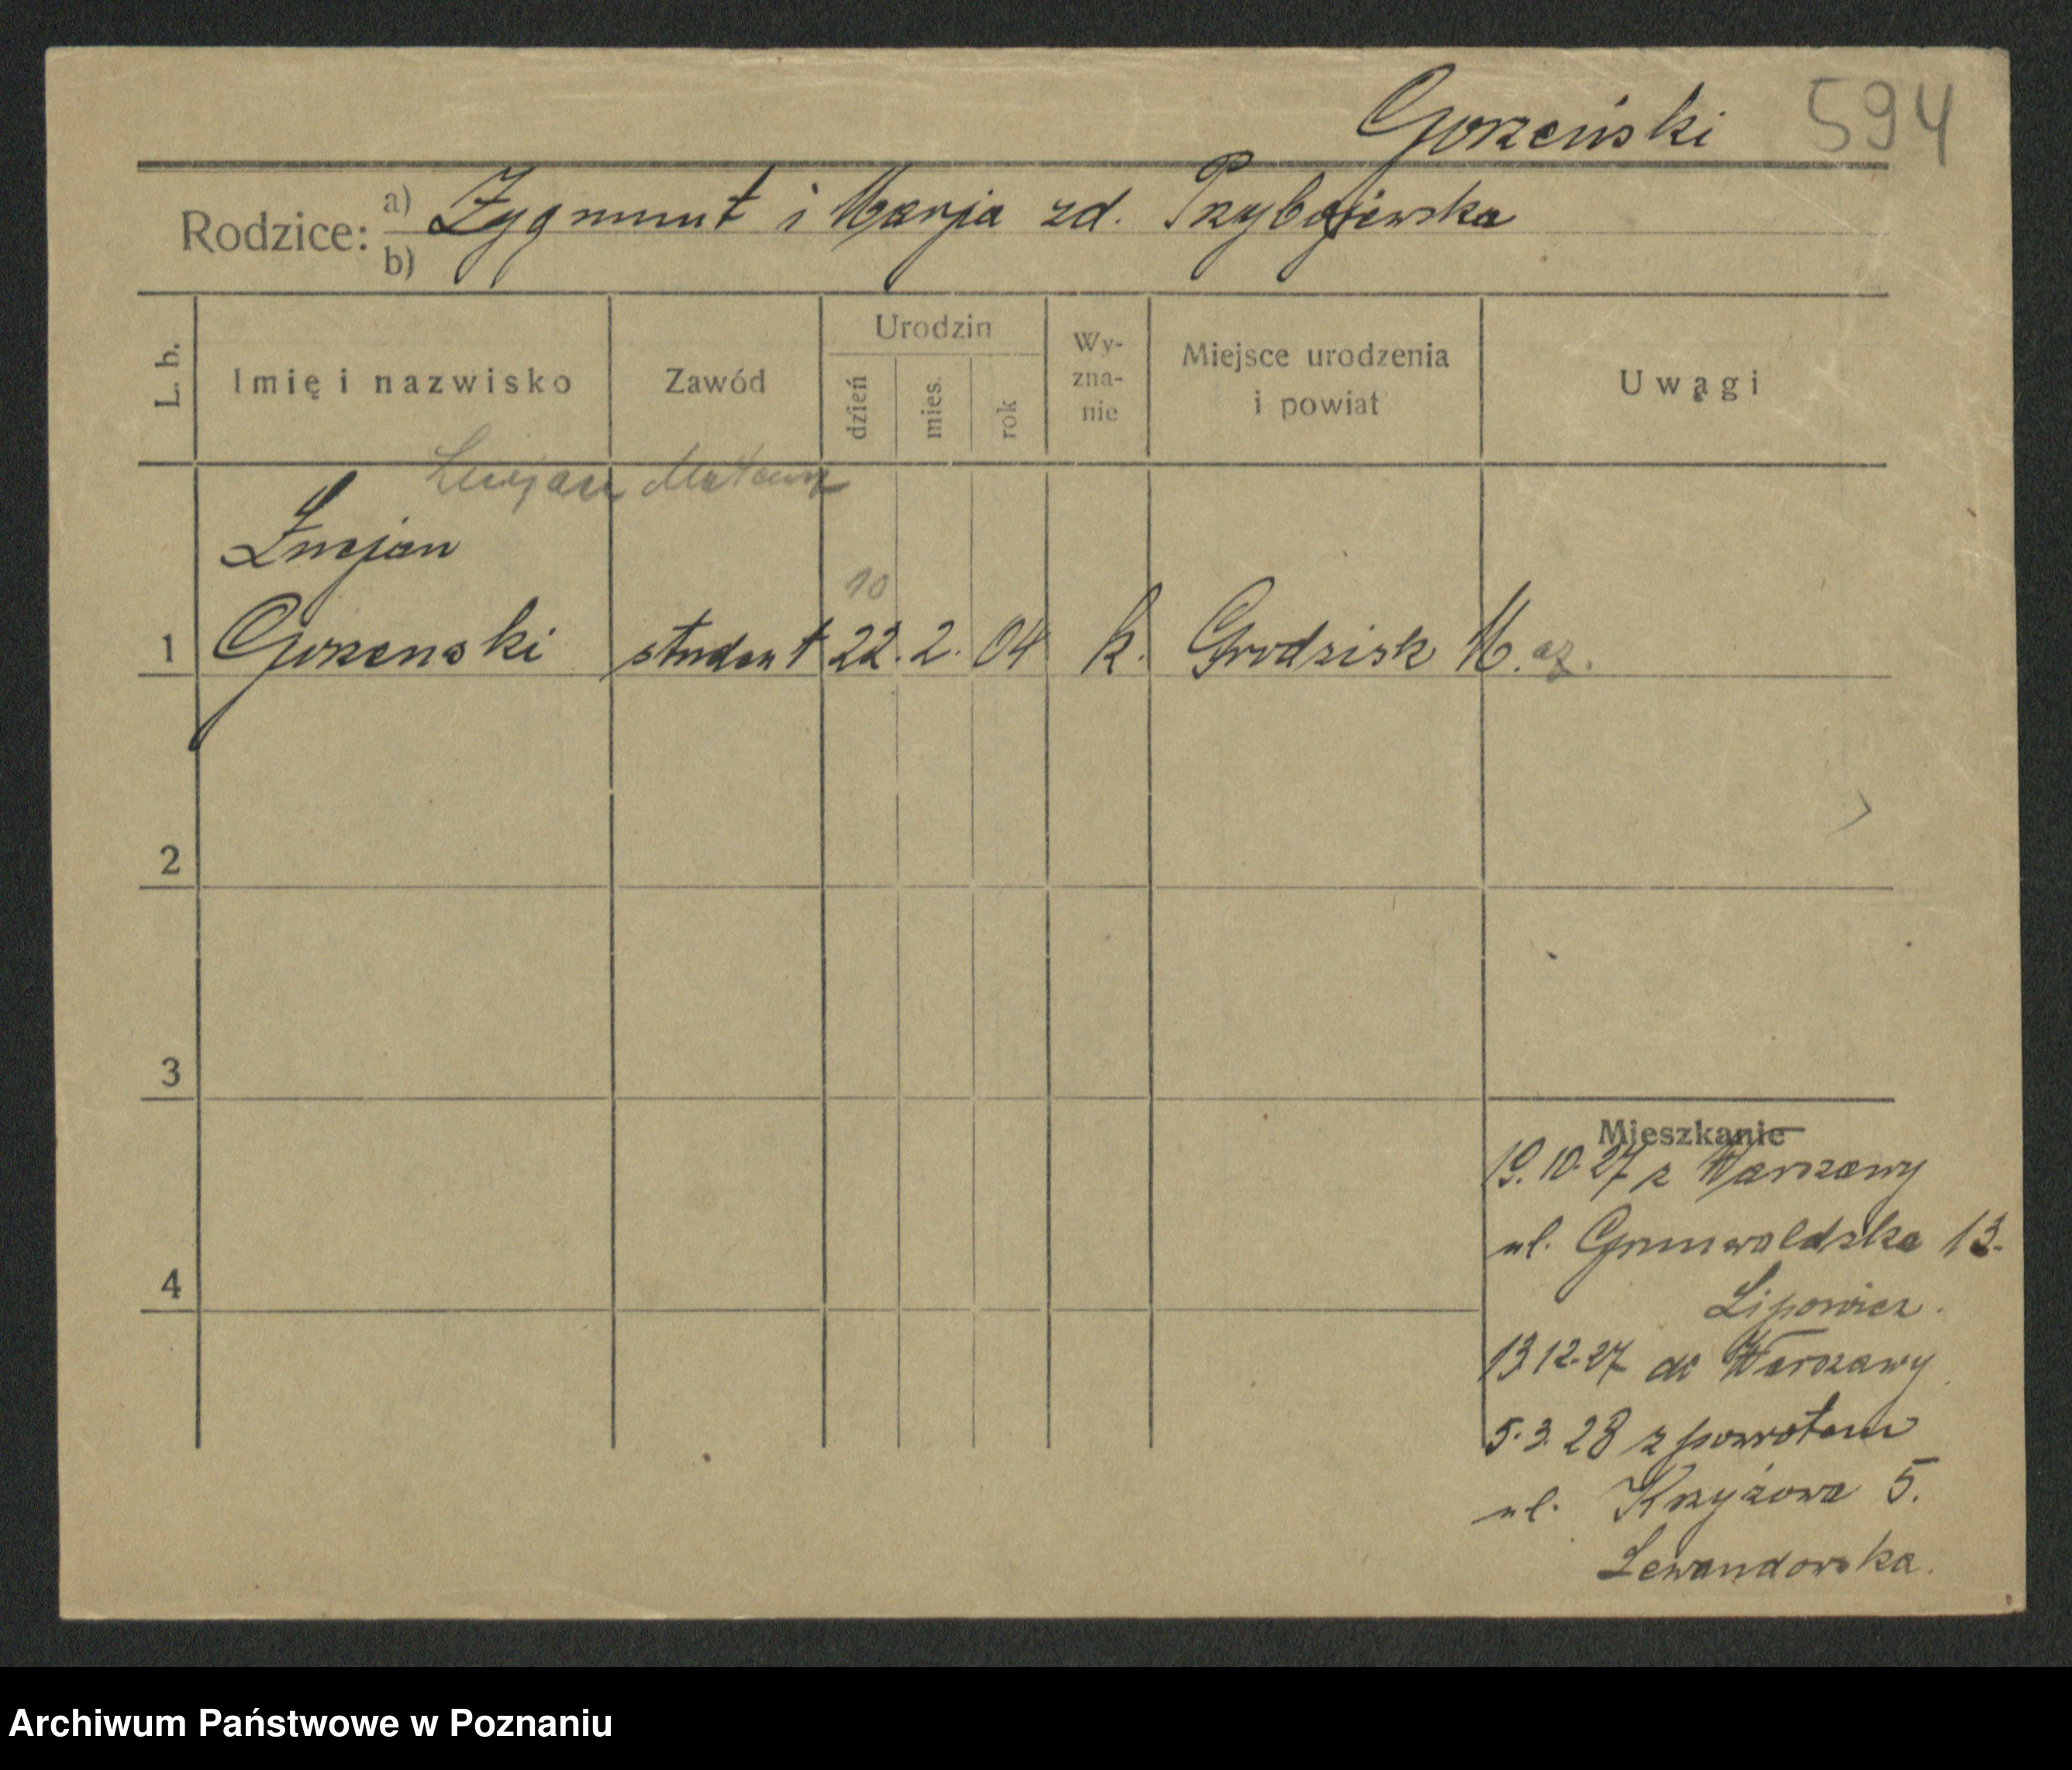 Gorzeński 594
Rodzice: a) Zygmunt i Marja zd. Przybojewska
b)
L. b. Imię i nazwisko Zawód Urodzin dzień mies. rok Wy-zna-nie Miejsce urodzenia i powiat Uwagi
Lucjan
Lucjan
10
1 Gorzenski student 22. 2. 04 k. Grodzisk Maz.
2
3
4
Mieszkanie
19.10.27 z Warszawy
ul. Grunwaldzka 13.
Lipowicz.
13.12.27 do Warszawy
5.3.28 z powrotem
ul. Krzyżowa 5.
Lewandowska.
Archiwum Państwowe w Poznaniu